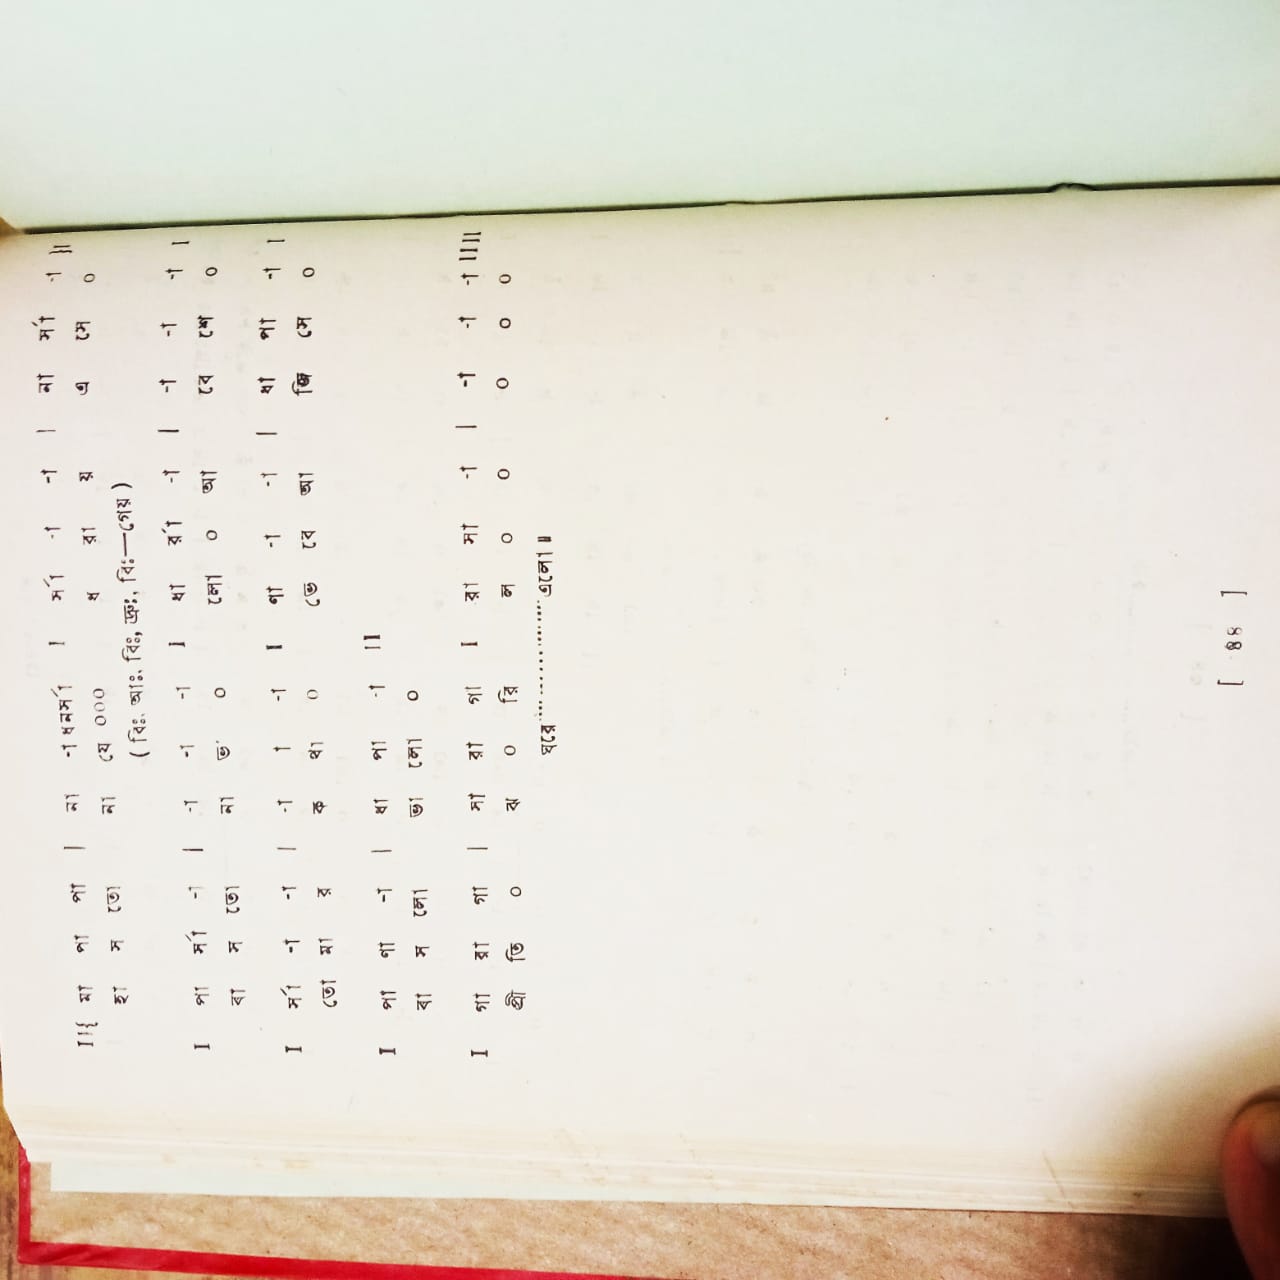 II{ মা পা পা | না -া ধনর্সা I র্সা -া -া | না র্সা -া }I
হা স তো না যে ০০০ ধ রা য় এ সে ০
( বিঃ. আঃ. বিঃ, দ্রুঃ, বিঃ—গেয় )
I পা র্সা -া | -া -া -া I ধা র্রা -া | -া -া -া I
বা স তো না ভ ০ লো ০ আ বে শে ০
I র্সা -া -া | -া া -া I ণা -া -া | ধা পা -া I
তো মা র ক থা ০ ভে বে আ জি সে ০
I পা ণা -া | ধা পা -া II
বা স লো ভা লো ০
I গা রা গা | সা রা গা I রা সা -া | -া -া -া IIII
প্রী তি ০ ঝ ০ রি ল ০ ০ ০ ০ ০
ঘরে..................এলো॥
[ ৪৪ ]